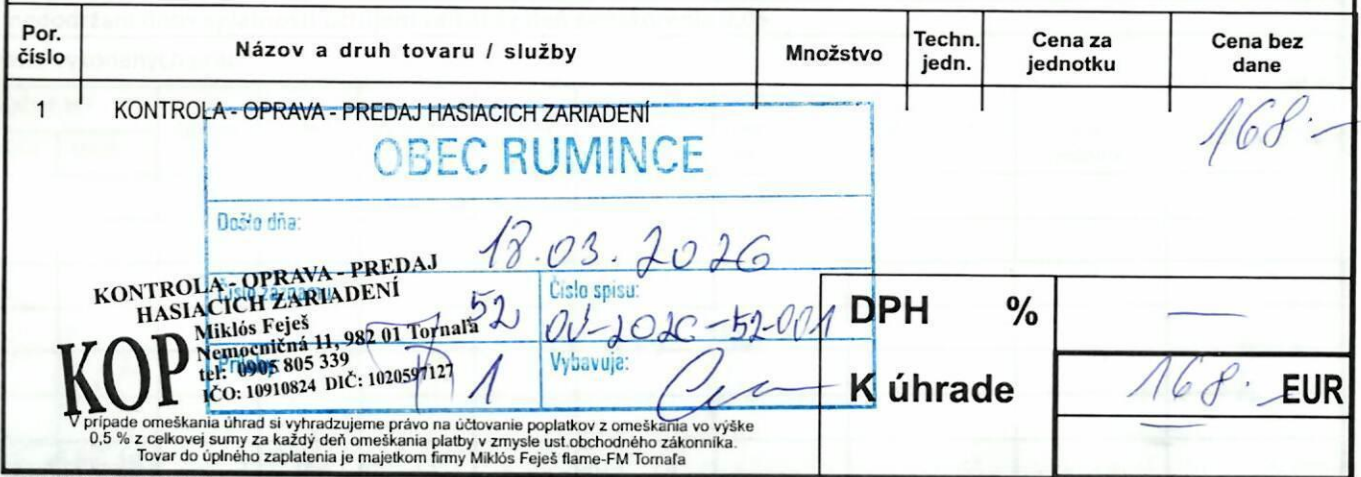 Por. číslo Názov a druh tovaru / služby Množstvo Techn. jedn. Cena za jednotku Cena bez dane
1 KONTROLA - OPRAVA - PREDAJ HASIACICH ZARIADENÍ 168.-
OBEC RUMINCE
Došlo dňa: 18.03.2026
Číslo záznamu: 52
Číslo spisu: OU-2026-52-001
Prílohy: 1
Vybavuje:
KONTROLA - OPRAVA - PREDAJ
HASIACICH ZARIADENÍ
KOP
Miklós Feješ
Nemocničná 11, 982 01 Tornaľa
tel: 0905 805 339
IČO: 10910824 DIČ: 1020597127
DPH % —
K úhrade 168.- EUR
V prípade omeškania úhrad si vyhradzujeme právo na účtovanie poplatkov z omeškania vo výške
0,5 % z celkovej sumy za každý deň omeškania platby v zmysle ust.obchodného zákonníka.
Tovar do úplného zaplatenia je majetkom firmy Miklós Feješ flame-FM Tornaľa